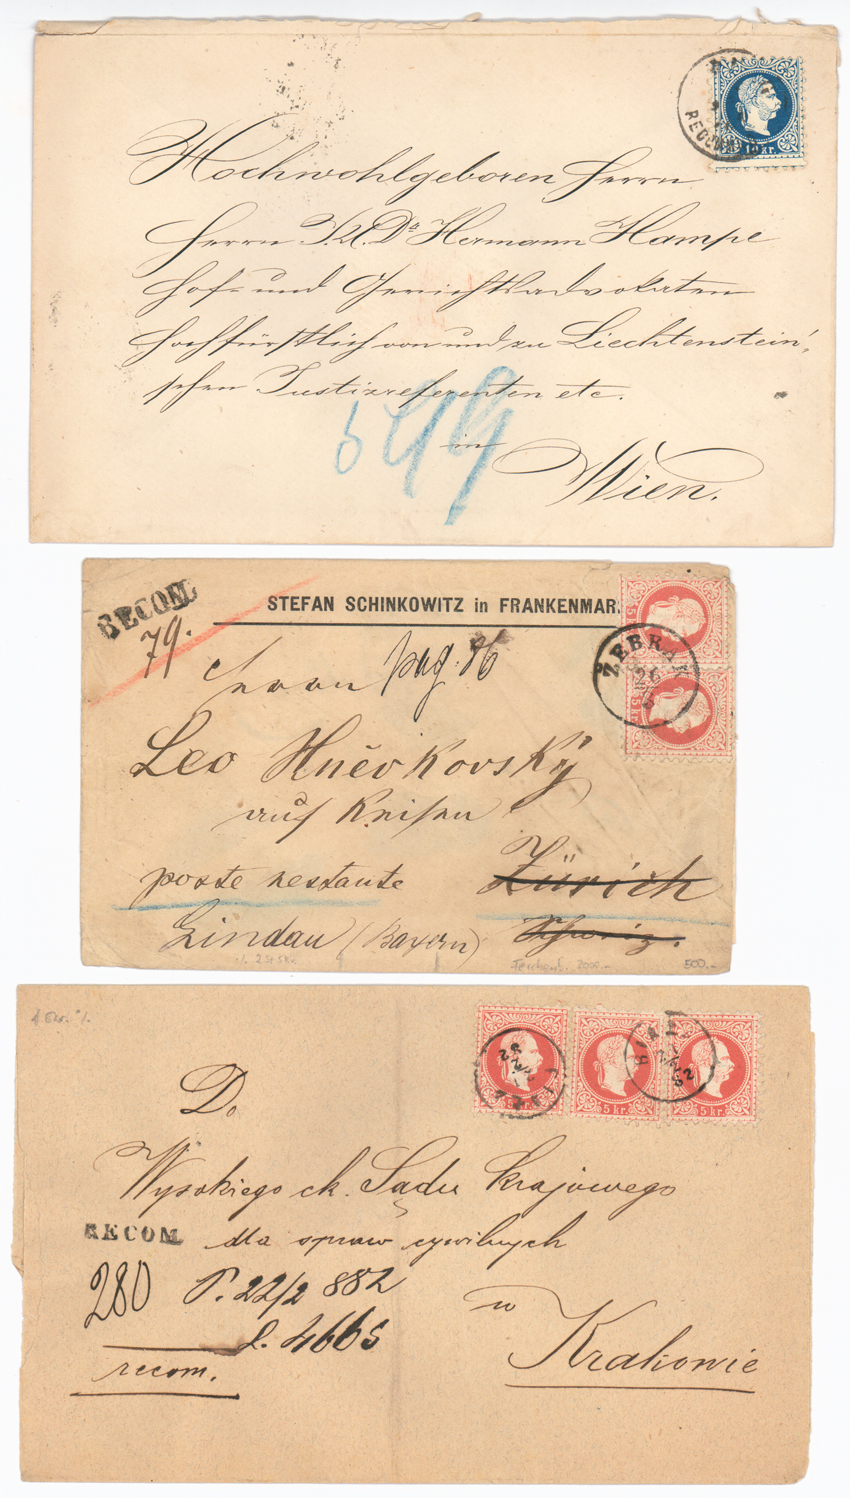 RECOM
10 kr.
Hochwohlgeboren Herrn
Herrn J. U. Dr Hermann Hampe
Hof- und Gerichtsadvokaten
hochfürstlich von und zu Liechtenstein'
schen Justizreferenten etc.
in
Wien.
599
RECOM.
STEFAN SCHINKOWITZ in FRANKENMAR
79.
Herrn pag. 86
ŽEBRAK
26
5 kr
5 kr
Leo Hněvkovský
auf Reisen
poste restante Zürich
Lindau (Bayern) Schweiz.
2000.-
500.-
5 kr.
5 kr.
5 kr.
82
D.
Wysokiego ck. Sądu krajowego
RECOM.
dla spraw cywilnych
280
P. 22/2 882
L. 4665
w
recom.
Krakowie